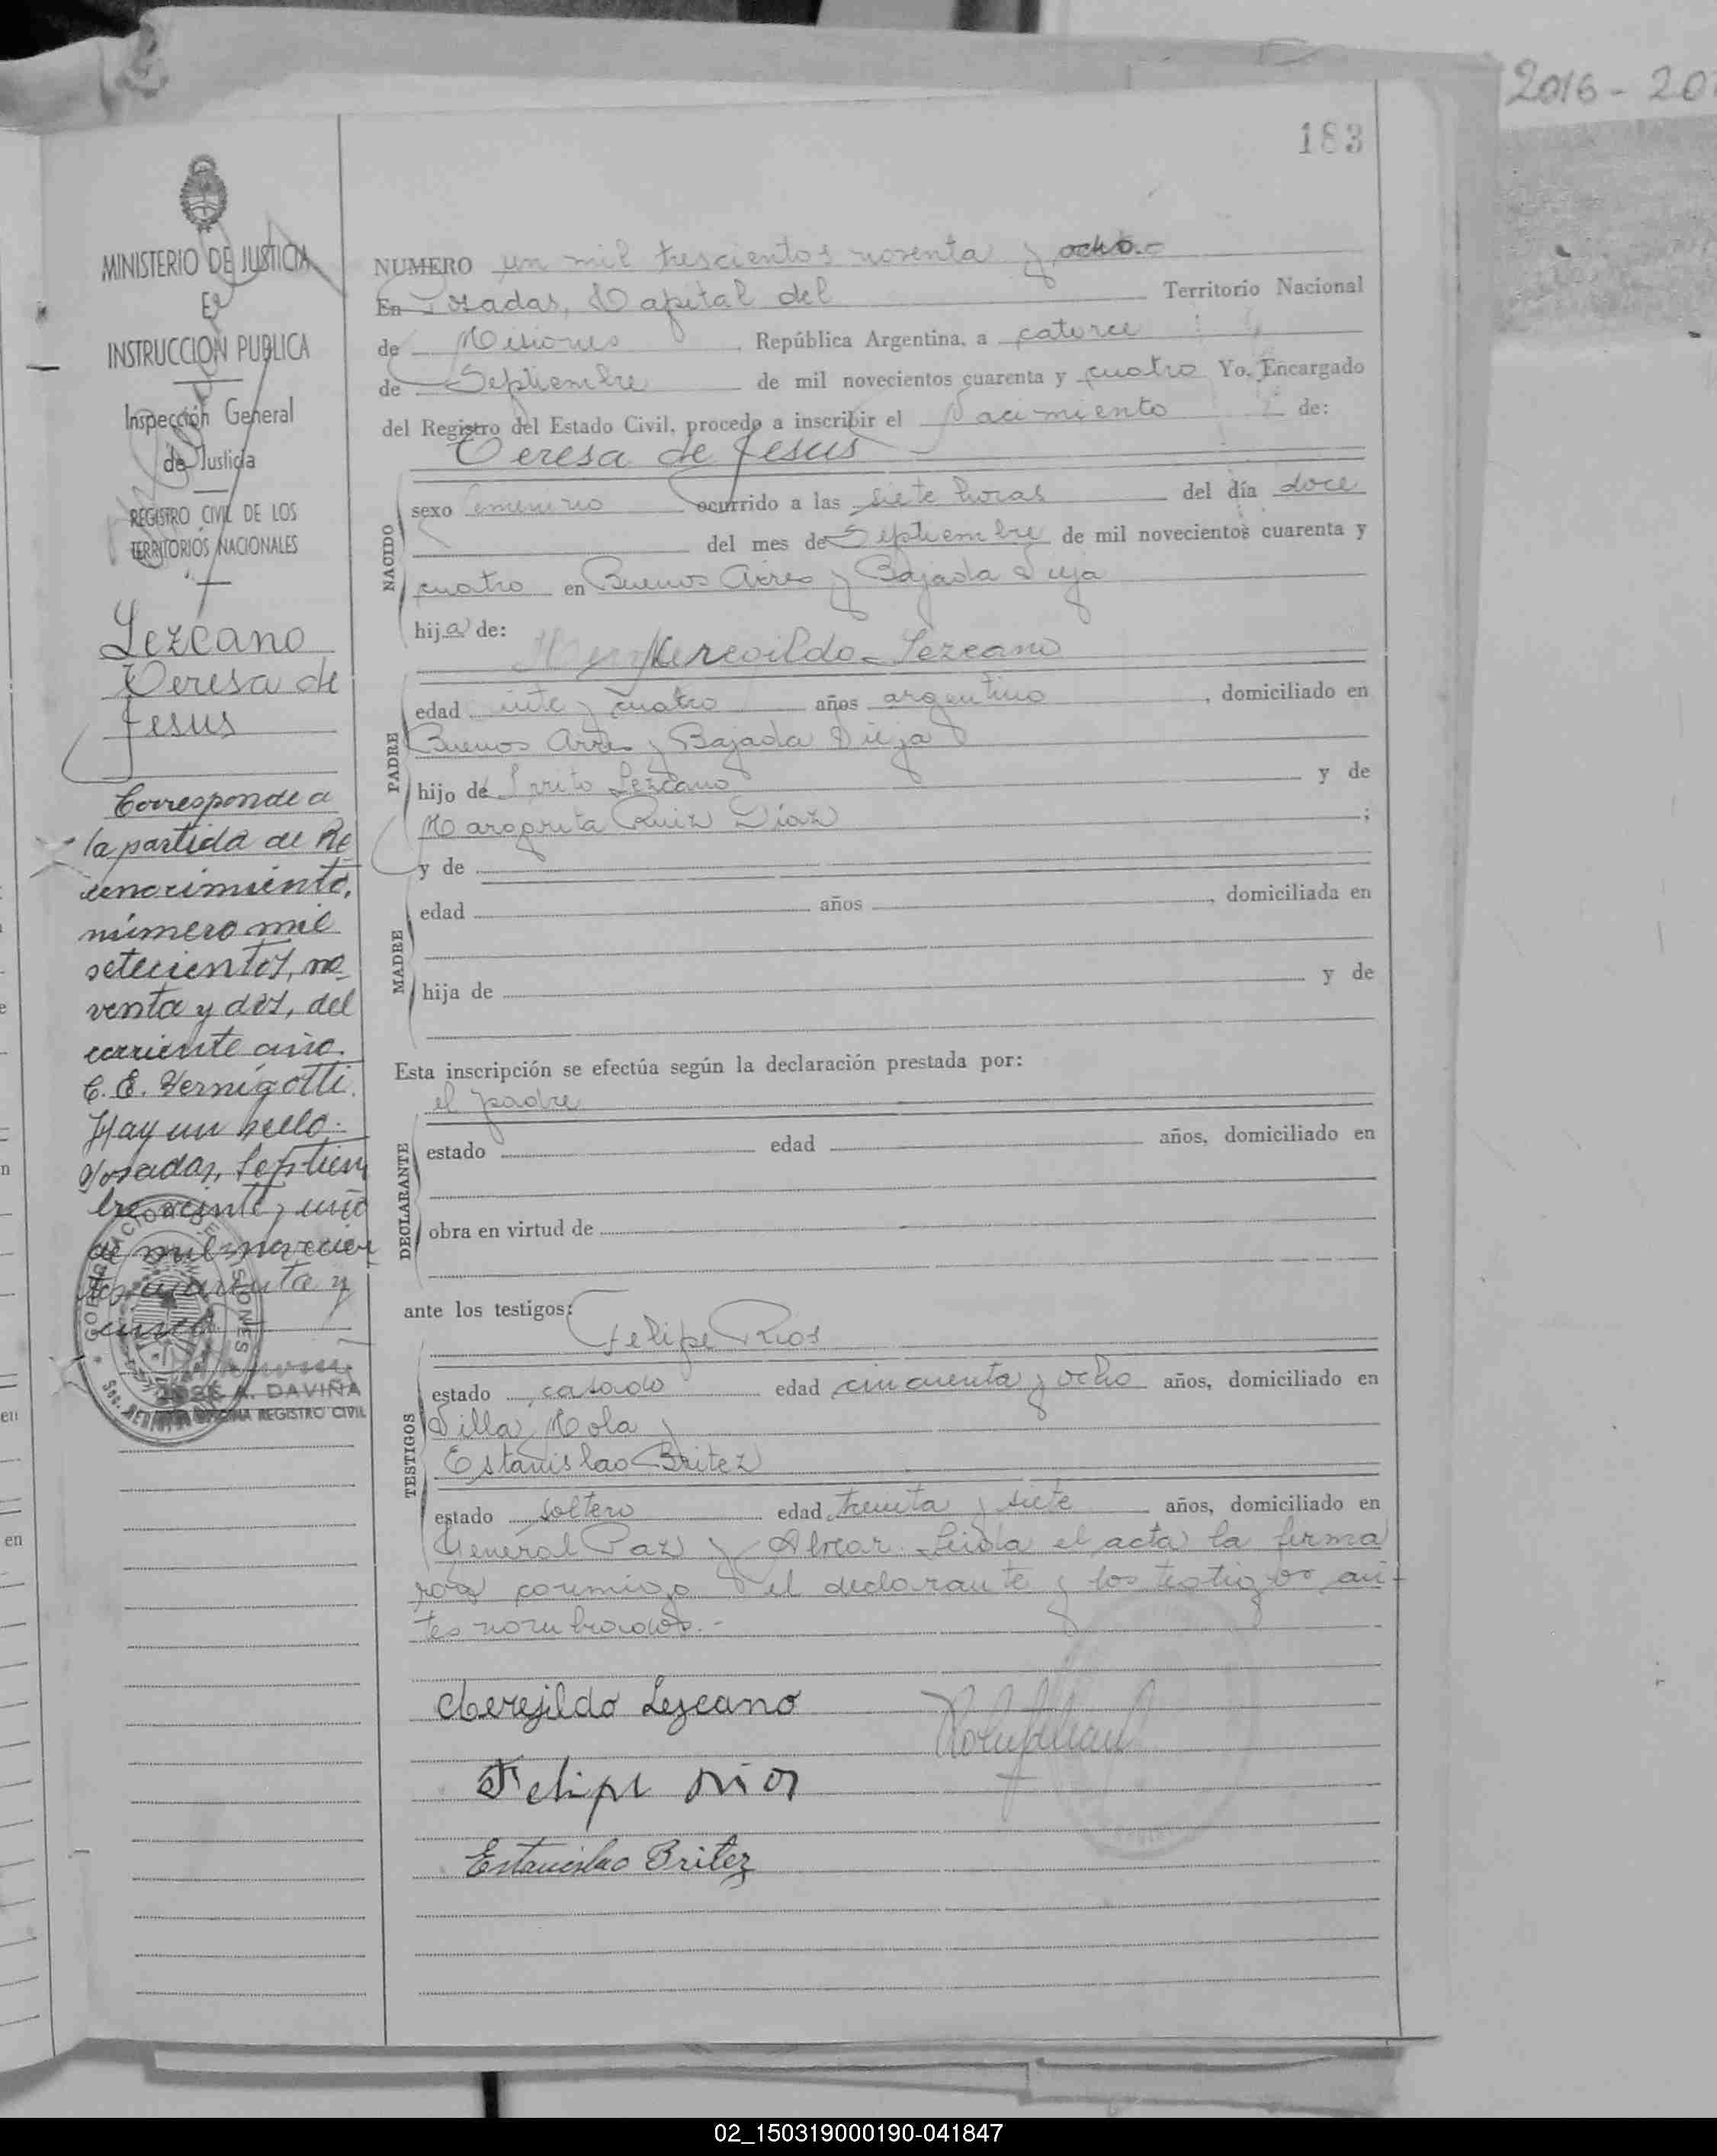 2016 - 20
183
MINISTERIO DE JUSTICIA
E
INSTRUCCION PUBLICA
Inspección General
de Justicia
REGISTRO CIVIL DE LOS
TERRITORIOS NACIONALES
Lezcano
Teresa de
Jesus
Corresponde a
la partida de Re
conocimiento,
número mil
setecientos, no
venta y dos, del
corriente año.
C. E. Vernigotti.
Hay un sello.
Posadas, Septiem
bre veinte y uno
de mil novecien
tos cuarenta y
GOBERNACION DE MISIONES
JOSE A. DAVIÑA
REGISTRO CIVIL
NUMERO un mil trescientos noventa y ocho.-
En Posadas, Capital del Territorio Nacional
de Misiones República Argentina, a catorce
de Septiembre de mil novecientos cuarenta y cuatro Yo, Encargado
del Registro del Estado Civil, procedo a inscribir el Nacimiento de:
Teresa de Jesus
NACIDO
sexo femenino ocurrido a las siete horas del día doce
del mes de Septiembre de mil novecientos cuarenta y
cuatro en Buenos Aires y Bajada Vieja
hija de:
Mereoildo Lezcano
PADRE
edad veinte y cuatro años argentino, domiciliado en
Buenos Aires y Bajada Vieja
hijo de Lezcano y de
Margarita Ruiz Díaz ;
y de
MADRE
edad años , domiciliada en
hija de y de
Esta inscripción se efectúa según la declaración prestada por:
el padre
DECLARANTE
estado edad años, domiciliado en
obra en virtud de
ante los testigos:
Felipe Rios
TESTIGOS
estado casado edad cincuenta y ocho años, domiciliado en
Villa Mola y
Estanislao Britez
estado soltero edad treinta y siete años, domiciliado en
General Paz y Alvear. Leida el acta la firma
ron conmigo el declarante y los testigos an-
tes nombrados.-
Cleregildo Lezcano
Felipe Rios
Estanislao Britez
02_150319000190-041847